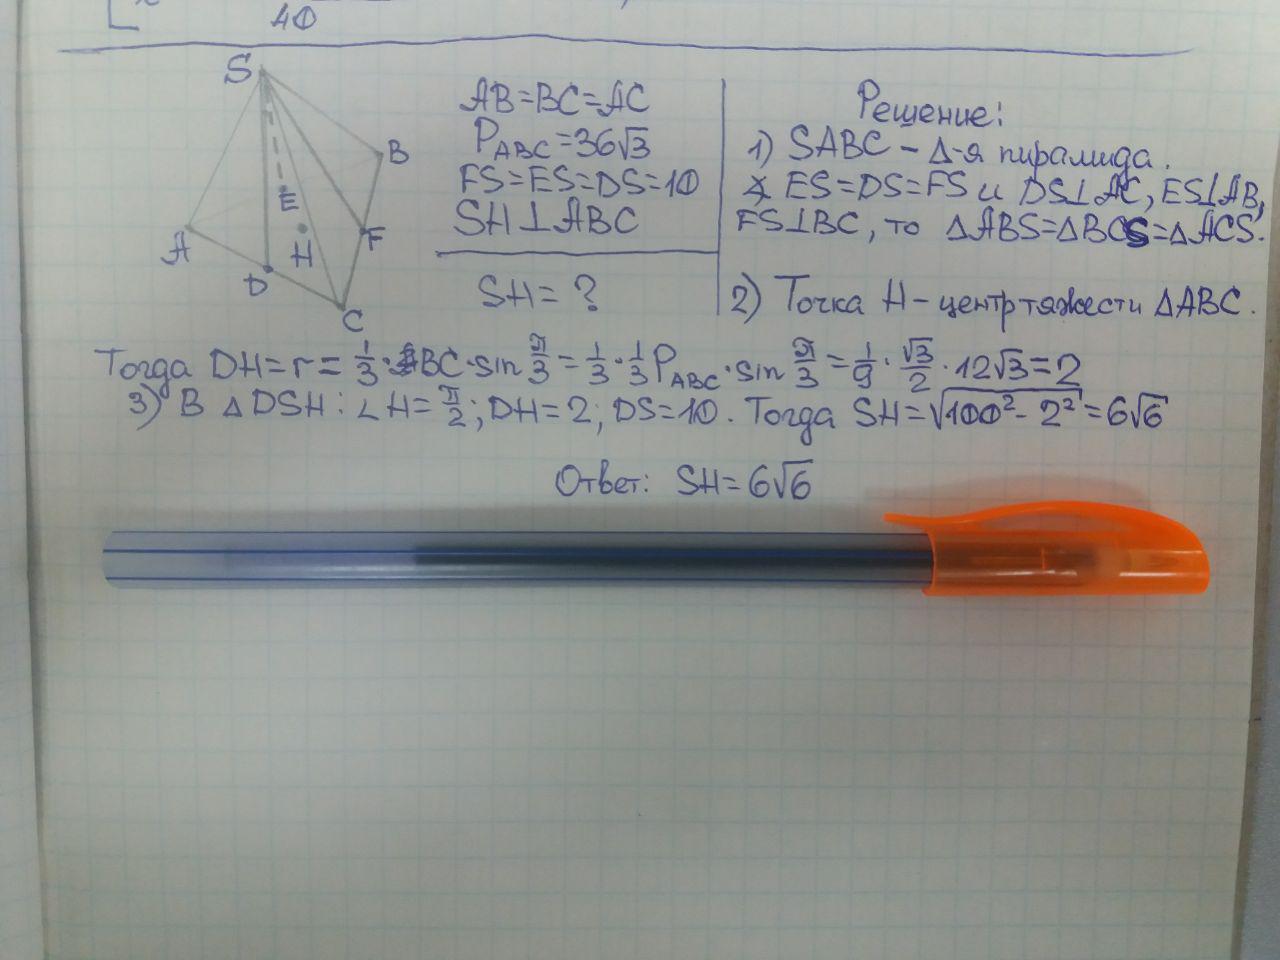 40
S
B
E
A
H
F
D
C
AB=BC=AC
P_ABC=36√3
FS=ES=DS=10
SH⊥ABC
SH=?
Решение:
1) SABC – Δ-я пирамида.
∡ ES=DS=FS и DS⊥AC, ES⊥AB,
FS⊥BC, то ΔABS=ΔBCS=ΔACS.
2) Точка H – центр тяжести ΔABC.
Тогда DH=r=1/3·BC·sin π/3=1/3·1/3 P_ABC·sin π/3=1/9·√3/2·12√3=2
3) В ΔDSH: ∠H=π/2; DH=2; DS=10. Тогда SH=√(100²-2²)=6√6
Ответ: SH=6√6